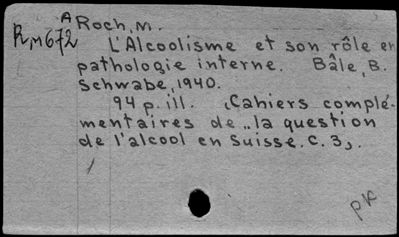 A Roch, M.
R,M672
L'Alcoolisme et son rôle en
pathologie interne. Bâle, B.
Schwabe, 1940.
94 p. ill. (Cahiers complé-
mentaires de „la question
de l'alcool en Suisse. C. 3).
pk